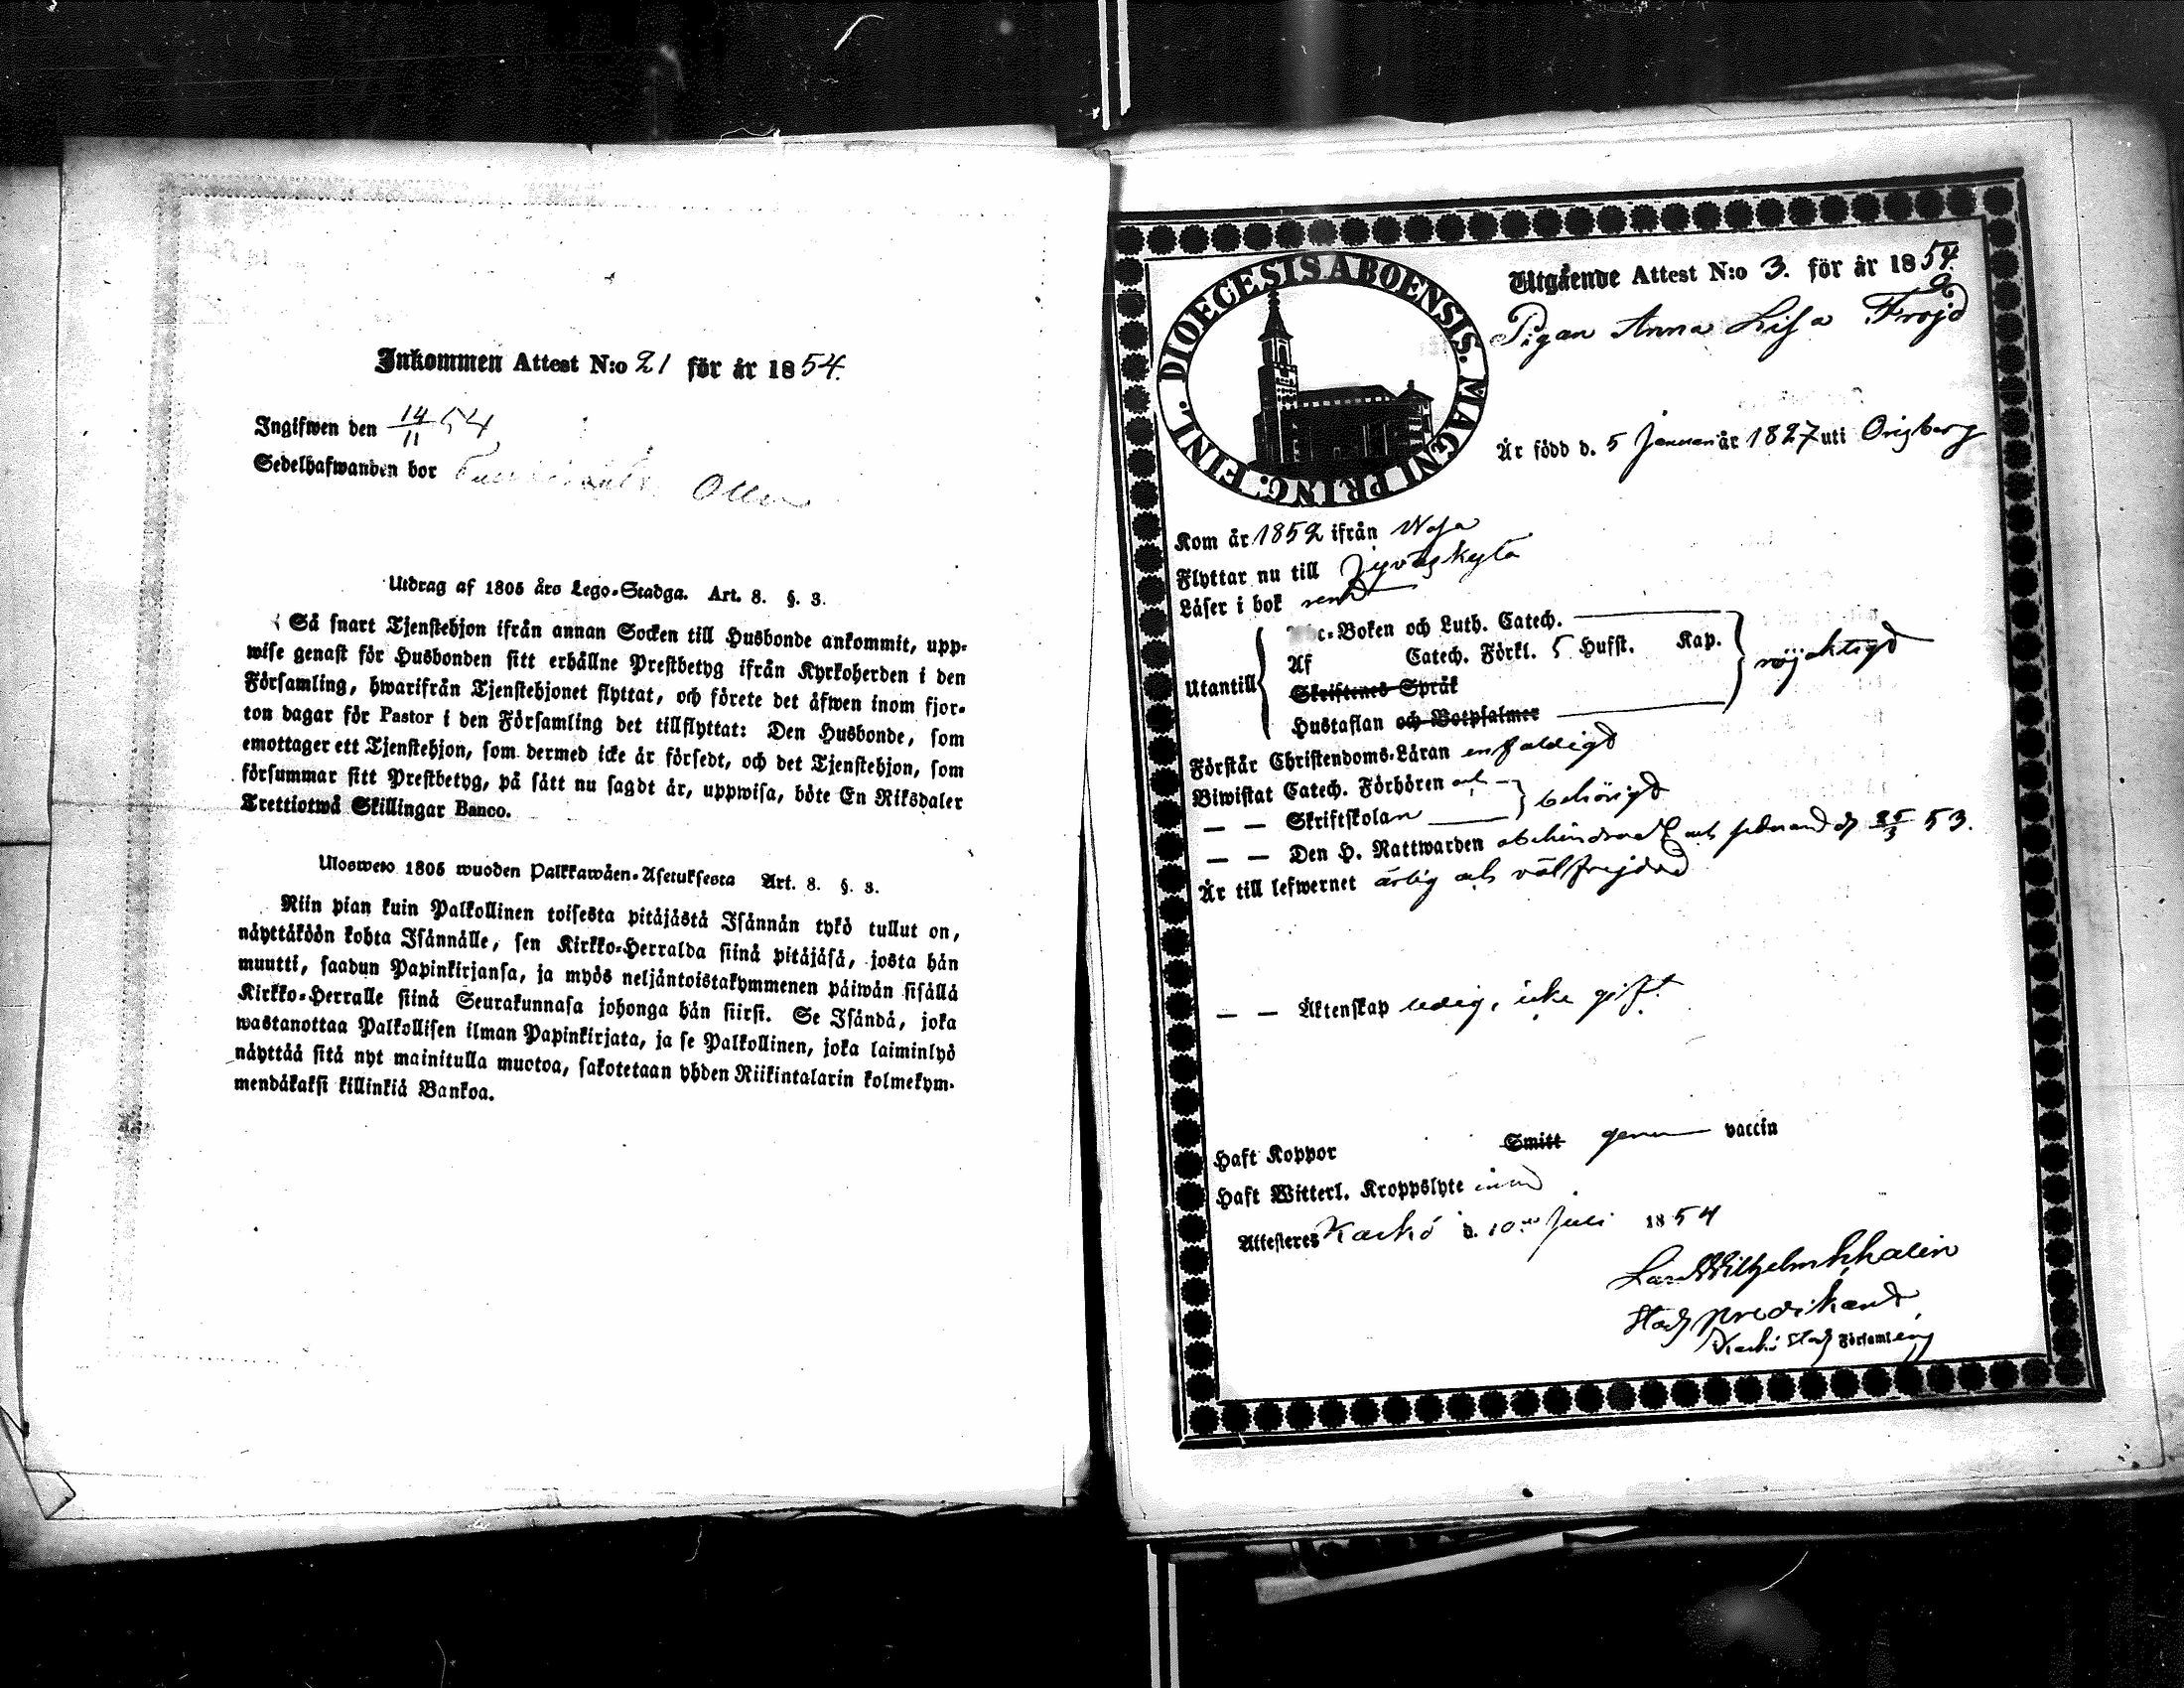 Inkommen Attest N:o 21 för år 1854.
Ingifwen den 14/11 54
Sedelhafwanden bor
Utdrag af 1805 års Lego-Stadga. Art. 8. §. 3.
Så snart Tjenstehjon ifrån annan Socken till Husbonde ankommit, upp-
wise genast för Husbonden sitt erhållne Prestbetyg ifrån Kyrkoherden i den
Församling, hwarifrån Tjenstehjonet flyttat, och förete det äfwen inom fjor-
ton dagar för Pastor i den Församling det tillflyttat: Den Husbonde, som
emottager ett Tjenstehjon, som dermed icke är försedt, och det Tjenstehjon, som
försummar sitt Prestbetyg, på sätt nu sagdt är, uppwisa, böte En Riksdaler
Trettiotwå Skillingar Banco.
Ulosweto 1805 wuoden Palkkawäen-Asetuksesta Art. 8. §. 3.
Niin pian kuin Palkollinen toisesta pitäjästä Isännän tykö tullut on,
näyttäköön kohta Isännälle, sen Kirkko-Herralda siinä pitäjäsä, josta hän
muutti, saadun Papinkirjansa, ja myös neljäntoistakymmenen päiwän sisällä
Kirkko-Herralle siinä Seurakunnasa johonga hän siirsi. Se Isändä, joka
wastanottaa Palkollisen ilman Papinkirjata, ja se Palkollinen, joka laiminlyö
näyttää sitä nyt mainitulla muotoa, sakotetaan yhden Riikintalarin kolmekym-
mendäkaksi killinkiä Bankoa.
DIOECESIS ABOENSIS. MAGNI PRINC. FINL.
Utgående Attest N:o 3. för år 1854.
Pigan Anna Lisa Fröjd
Är född d. 5 Januari år 1827 uti Orisberg
Kom år 1852 ifrån Wasa
Flyttar nu till Jyväskylä
Läser i bok rent
Utantill
Abc-Boken och Luth. Catech.
Af Catech. Förkl. 5 Hufst. Kap.
Skriftenes Språk
Hustaflan och Botpsalmer
nöjaktigt
Förstår Christendoms-Läran enfaldigt
Biwistat Catech. Förhören och
— — Skriftskolan
behörigt
— — Den H. Nattwarden obehindrad och sednast d 25/3 53.
Är till lefwernet ärlig och välfrejdad
— — Äktenskap ledig, icke gift
Haft Koppor Smitt genom vaccin
Haft Witterl. Kroppslyte
Attesteres Kaskö d. 10de Juli 1854
Lars Wilhelm
Stadspredikant
Kaskö Stads Församling